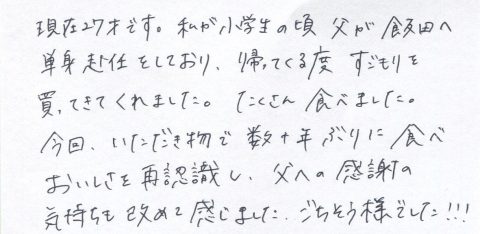 現在27才です。私が小学生の頃 父が飯田へ
単身赴任をしており、帰ってくる度 すごもりを
買ってきてくれました。たくさん食べました。
今回、いただき物で数十年ぶりに食べ
おいしさを再認識し、父への感謝の
気持ちも改めて感じました。ごちそう様でした!!!